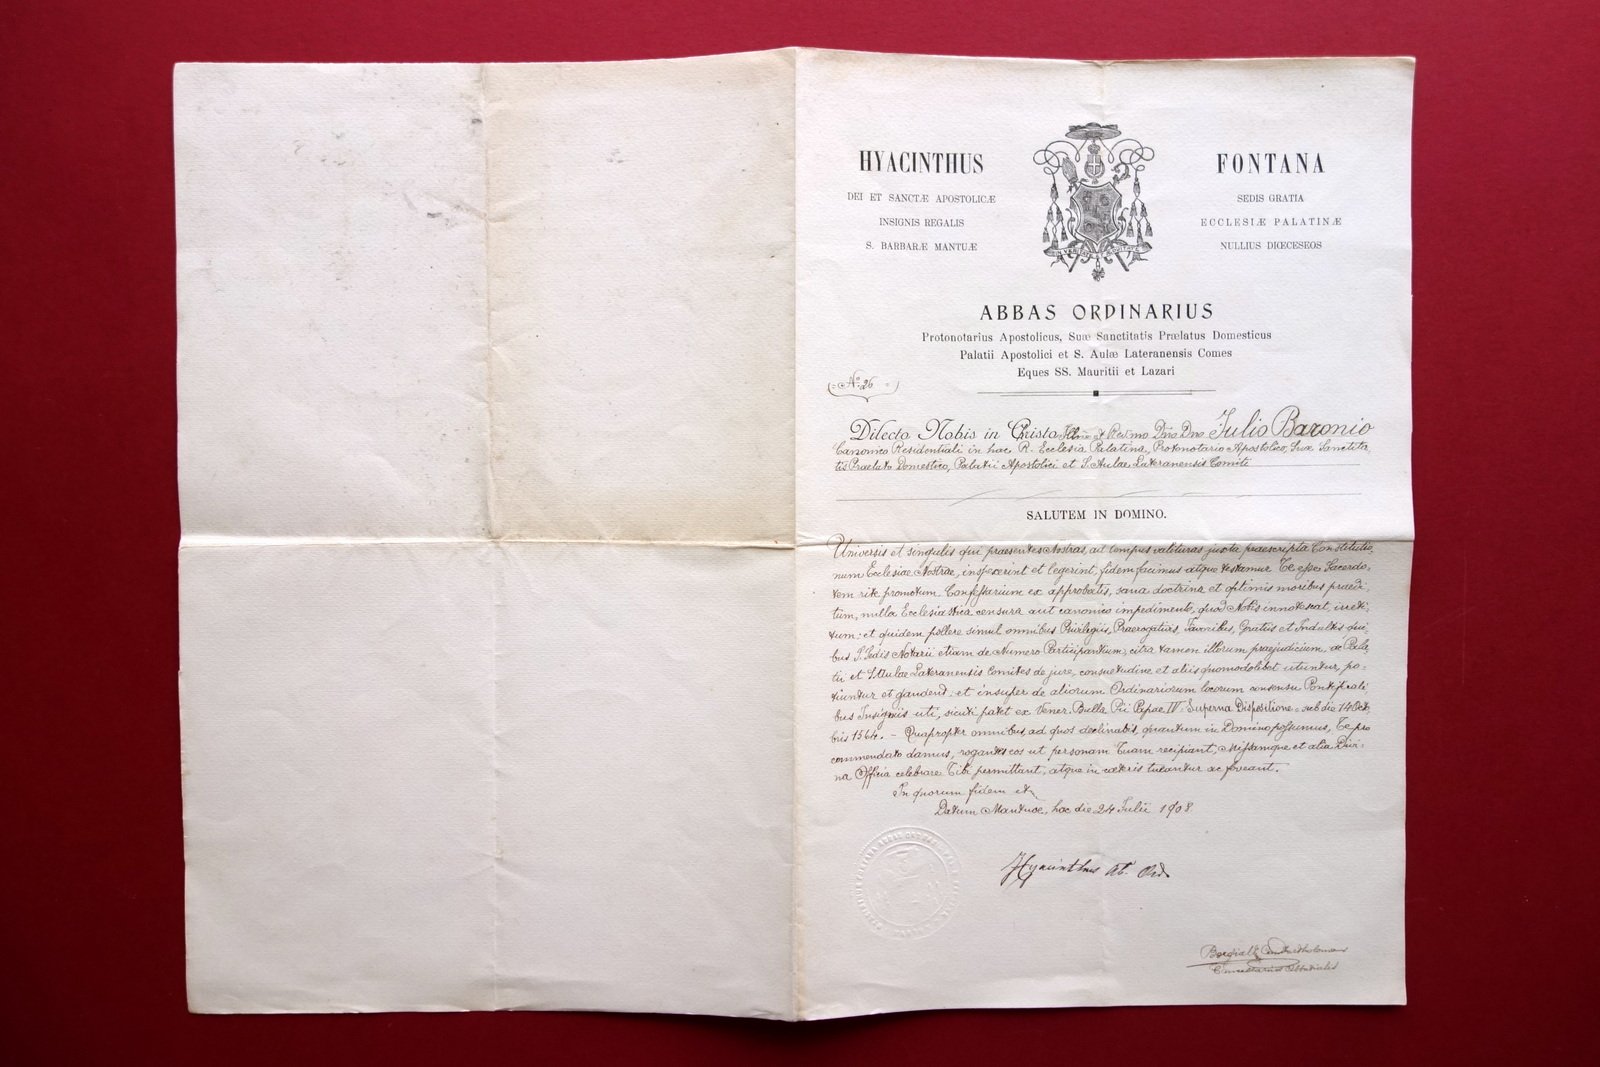 HYACINTHUS FONTANA
DEI ET SANCTÆ APOSTOLICÆ SEDIS GRATIA
INSIGNIS REGALIS ECCLESIÆ PALATINÆ
S. BARBARÆ MANTUÆ NULLIUS DIŒCESEOS
ABBAS ORDINARIUS
Protonotarius Apostolicus, Suæ Sanctitatis Prælatus Domesticus
Palatii Apostolici et S. Aulæ Lateranensis Comes
Eques SS. Mauritii et Lazari
No. 26
Dilecto Nobis in Christo Illmo et Revmo Dno Dno Julio Baronio
Canonico Residentiali in hac R. Ecclesia Palatina, Protonotario Apostolico, Suae Sanctita
tis Praelato Domestico, Palatii Apostolici et S. Aulae Lateranensis Comiti
SALUTEM IN DOMINO.
Universis et singulis qui praesentes Nostras, ad tempus valituras juxta praescripta Constitutio
num Ecclesiae Nostrae, inspexerint et legerint, fidem facimus atque testamur Te esse Sacerdo,
tem rite promotum, Confessarium ex approbatis, sana doctrina et optimis moribus praedi
tum, nulla Ecclesiastica censura aut canonico impedimento, quod Nobis innotescat, irreti
tum: et quidem pollere simul omnibus Privilegiis, Praerogativis, Favoribus, Gratiis et Indultis qui
bus S. Sedis Notarii etiam de Numero Participantium, citra tamen illorum praejudicium, ac Pala
tii et S. Aulae Lateranensis Comites de jure, consuetudine et aliis quomodolibet utuntur, po-
tiuntur et gaudent: et insuper de aliorum Ordinariorum locorum consensu Pontificali
bus Insignis uti, sicuti patet ex Vener. Bulla Pii Papae IV. Superna Dispositione sub die 14 Octo
bris 1564. - Quapropter omnibus, ad quos declinabis, quantum in Domino possumus, Te
commendato damus, rogantes eos ut personam Tuam recipiant, Missamque et alia Divi-
na Officia celebrare Tibi permittant, atque in caeteris tueantur ac foveant.
In quorum fidem etc.
Datum Mantuae, hac die 24 Julii 1908
Hyacinthus Ab. Ord.
Cancellarius Abbatialis